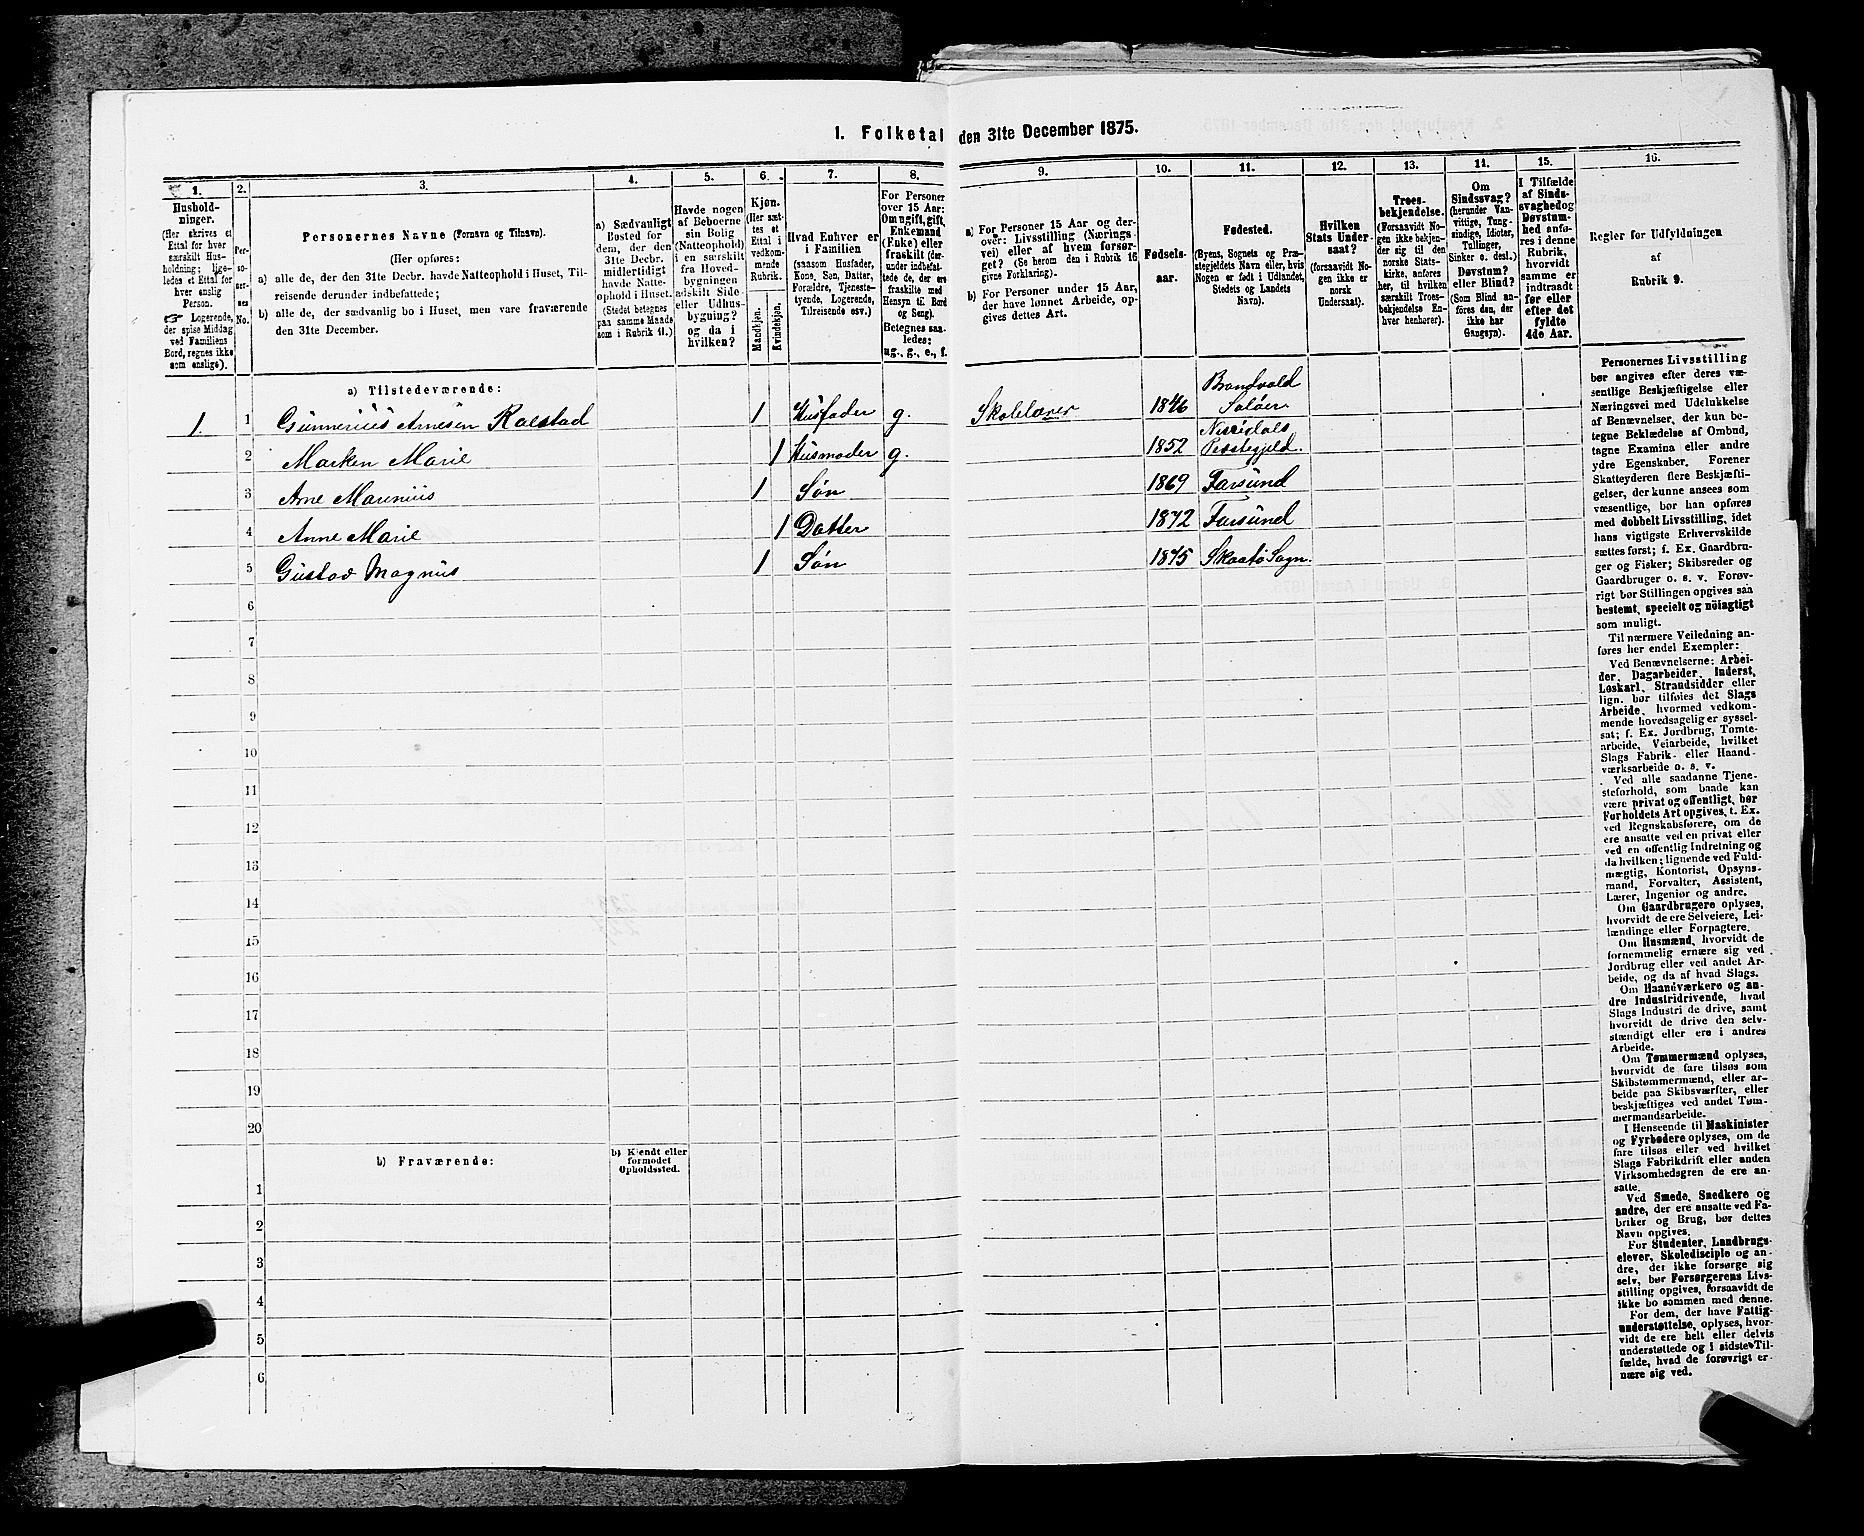 1. Folketal den 31te December 1875.
1.
2.
3.
4.
5.
6.
7.
8.
9.
10.
11.
12.
13.
14.
15.
16.
Hushold-
ninger.
(Her skrives et
Ettal for hver
særskilt Hus-
holdning; lige-
ledes et Ettal for
hver enslig
Person.
Logerende,
der spise Middag
ved Familiens
Bord, regnes ikke
som enslige).
Per-
so-
ner-
nes
No.
Personernes Navne (Fornavn og Tilnavn).
(Her opføres:
a) alle de, der den 31te Decbr. havde Natteophold i Huset, Til-
reisende derunder indbefattede;
b) alle de, der sædvanlig bo i Huset, men vare fraværende
den 31te December.
a) Sædvanligt
Bosted for
dem, der den
31te Decbr.
midlertidigt
havde Natte-
ophold i Huset.
(Stedet betegnes
paa samme Maade
som i Rubrik 11.)
Havde nogen
af Beboerne
sin Bolig
(Natteophold)
i en særskilt
fra Hoved-
bygningen
adskilt Side-
eller Udhus-
bygning?
og da i
hvilken?
Kjøn.
(Her sæt-
tes et
Ettal i
vedkom-
mende
Rubrik.
Mandkjøn.
Kvindekjøn.
Hvad Enhver er
i Familien
(saasom Husfader,
Kone, Søn, Datter,
Forældre, Tjeneste-
tyende, Logerende,
Tilreisende osv.)
For Personer
over 15 Aar:
Om ugift, gift,
Enkemand
(Enke) eller
fraskilt (der-
under indbefat-
tede de, der ere
fraskilte med
Hensyn til Bord
og Seng).
Betegnes saa-
ledes:
ug., g., e., f.
a) For Personer 15 Aar og der-
over: Livsstilling (Nærings-
vei) eller af hvem forsør-
get? (Se herom den i Rubrik 16
givne Forklaring).
b) For Personer under 15 Aar,
der have lønnet Arbeide, op-
gives dettes Art.
Fødsels-
aar.
Fødested.
(Byens, Sognets og Præ-
stegjeldets Navn eller, hvis
Nogen er født i Udlandet,
Stedets og Landets
Navn).
Hvilken
Stats Under-
saat?
(forsaavidt No-
gen ikke er
norsk
Undersaat).
Troes-
bekjendelse.
(Forsaavidt No-
gen ikke bekjen-
der sig til den
norske Stats-
kirke, anføres
her, til hvilken
særskilt Troes-
bekjendelse En-
hver henhører).
Om
Sindssvag?
(herunder Van-
vittige, Tung-
sindige, Idioter,
Tullinger,
Sinker o. desl.)
Døvstum?
eller Blind?
(Som Blind an-
føres den, der
ikke har
Gangsyn).
I Tilfælde
af Sinds-
svaghed og
Døvstum-
hed anfø-
res i denne
Rubrik,
hvorvidt
samme er
indtraadt
før eller
efter det
fyldte
4de Aar.
Regler for Udfyldningen
af
Rubrik 9.
a) Tilstedeværende:
1. 1 Gunnerius Arnesen Kalstad 1 Husfader g. Skolelærer 1846 Brandvold
Soløer
2 Marken Marie 1 Husmoder g. 1852 Nissedals
Prestegjeld.
3 Arne Marinius 1 Søn 1869 Farsund
4 Anne Marie 1 Datter 1872 Farsund
5 Gustav Magnus 1 Søn 1875 Skaatø Sogn.
6
7
8
9
10
11
12
13
14
15
16
17
18
19
20
b) Fraværende:
b) Kjendt eller
formodet
Opholdssted.
1
2
3
4
5
6
Personernes Livsstilling
bør angives efter deres væ-
sentlige Beskjæftigelse eller
Næringsvei med Udelukkelse
af Benævnelser, der kun be-
tegne Beklædelse af Ombud,
tagne Examina eller andre
ydre Egenskaber. Forener
Skatteyderen flere Beskjæfti-
gelser, der kunne ansees som
væsentlige, bør han opføres
med dobbelt Livsstilling, idet
hans vigtigste Erhvervskilde
sættes først; f. Ex. Gaardbru-
ger og Fisker; Skibsreder og
Gaardbruger o. s. v. Forøv-
rigt bør Stillingen opgives saa
bestemt, specielt og nöiagtigt
som muligt.
Til nærmere Veiledning an-
føres her endel Exempler:
Ved Benævnelserne: Arbei-
der, Dagarbeider, Inderst,
Løskarl, Strandsidder eller
lign. bør tilføies det Slags
Arbeide, hvormed vedkom-
mende hovedsagelig er syssel-
sat; f. Ex. Jordbrug, Tomte-
arbeide, Veiarbeide, hvilket
Slags Fabrik- eller Haand-
værksarbeide o. s. v.
Ved alle saadanne Tjene-
steforhold, som baade kan
være privat og offentligt, bør
Forholdets Art opgives, t. Ex.
ved Regnskabsførere, om de
ere ansatte ved en privat eller
ved en offentlig Indretning og
da hvilken; lignende ved Fuld-
mægtig, Kontorist, Opsyns-
mand, Forvalter, Assistent,
Lærer, Ingeniør og andre.
Om Gaardbrugere oplyses,
hvorvidt de ere Selveiere, Lei-
lændinge eller Forpagtere.
Om Husmænd, hvorvidt de
fornemmelig ernære sig ved
Jordbrug eller ved andet Ar-
beide, og da af hvad Slags.
Om Haandværkere og an-
dre Industridrivende, hvad
Slags Industri de drive, samt
hvorvidt de drive den selv-
stændigt eller ere i andres
Arbeide.
Om Tømmermænd oplyses,
hvorvidt de fare tilsøs som
Skibstømmermænd, eller ar-
beide paa Skibsværfter, eller
beskjæftiges ved andet Tøm-
mermandsarbeide.
I Henseende til Maskinister
og Fyrbødere oplyses, om de
fare tilsøs eller ved hvilket
Slags Fabrikdrift eller anden
Virksomhedsgren de ere an-
satte.
Ved Smede, Snedkere og
andre, der ere ansatte ved Fa-
briker og Brug, bør dettes
Navn opgives.
For Studenter, Landbrugs-
elever, Skoledisciple og an-
dre, der ikke forsørge sig
selv, bør Forsørgerens Livs-
stilling opgives, forsaavidt de
ikke bo sammen med denne.
For dem, der have Fattig-
understøttelse, oplyses, hvor-
vidt de ere helt eller delvis
understøttede og i sidste Til-
fælde, hvad de forøvrigt er-
nære sig ved.